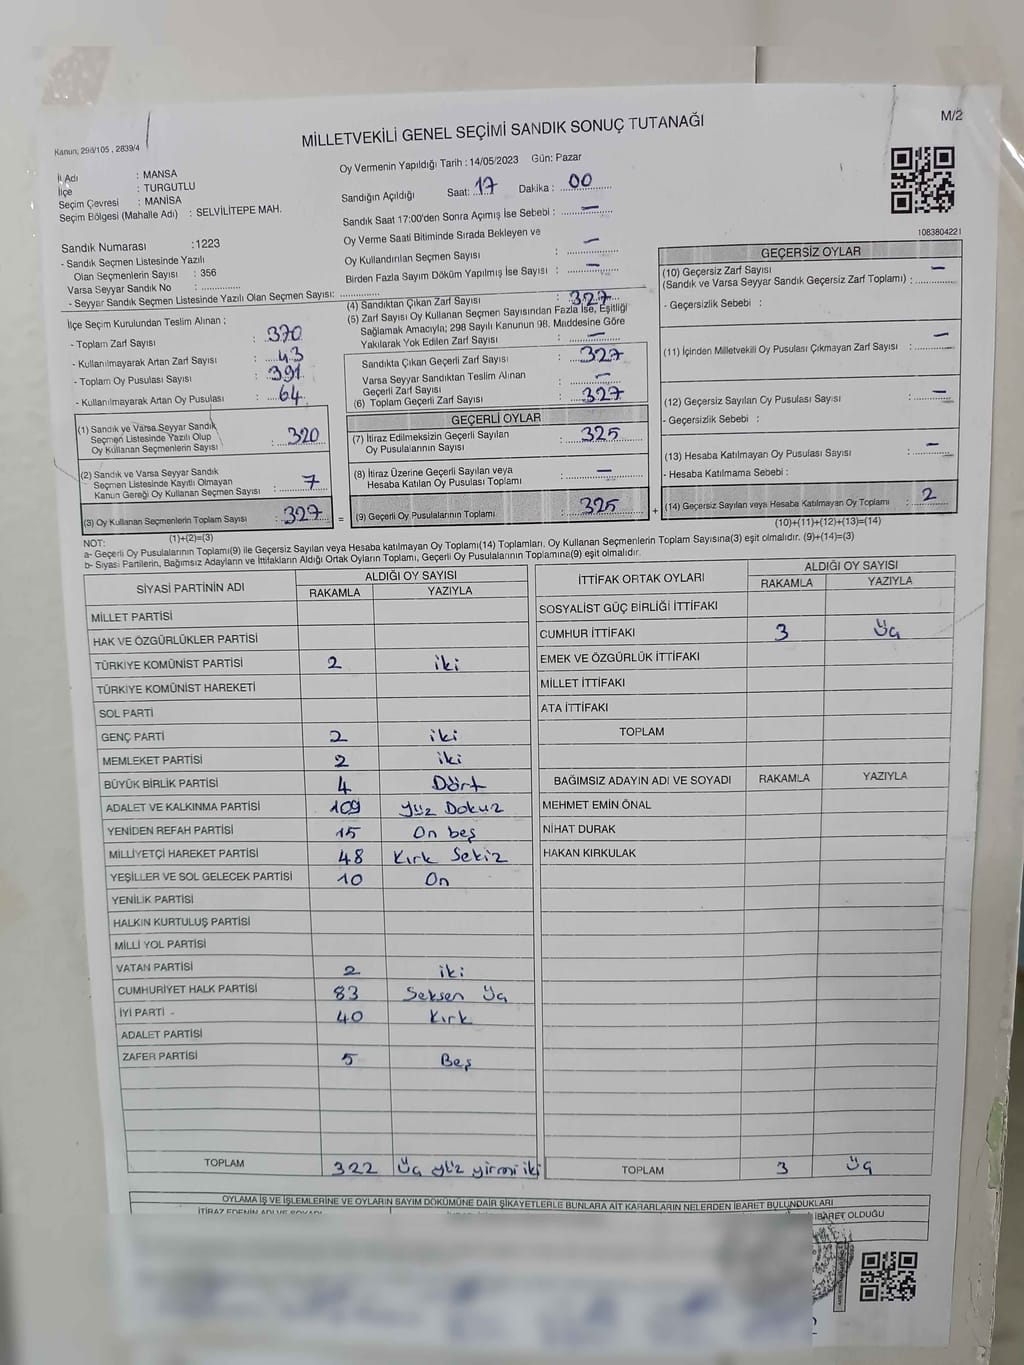 M/2
MİLLETVEKİLİ GENEL SEÇİMİ SANDIK SONUÇ TUTANAĞI
Kanun, 298/105 , 2839/4
Oy Vermenin Yapıldığı Tarih : 14/05/2023 Gün: Pazar
İl Adı : MANSA
İlçe : TURGUTLU
Seçim Çevresi : MANİSA
Seçim Bölgesi (Mahalle Adı) : SELVİLİTEPE MAH.
Sandığın Açıldığı Saat: 17 Dakika : 00
Sandık Saat 17:00'den Sonra Açımış İse Sebebi : —
Oy Verme Saati Bitiminde Sırada Bekleyen ve
Oy Kullandırılan Seçmen Sayısı : —
Birden Fazla Sayım Döküm Yapılmış İse Sayısı : —
1083804221
Sandık Numarası : 1223
- Sandık Seçmen Listesinde Yazılı
Olan Seçmenlerin Sayısı : 356
Varsa Seyyar Sandık No :
- Seyyar Sandık Seçmen Listesinde Yazılı Olan Seçmen Sayısı:
İlçe Seçim Kurulundan Teslim Alınan ;
- Toplam Zarf Sayısı : 370
- Kullanılmayarak Artan Zarf Sayısı : 43
- Toplam Oy Pusulası Sayısı : 391
- Kullanılmayarak Artan Oy Pusulası : 64
(1) Sandık ve Varsa Seyyar Sandık
Seçmen Listesinde Yazılı Olup
Oy Kullanan Seçmenlerin Sayısı : 320
(2) Sandık ve Varsa Seyyar Sandık
Seçmen Listesinde Kayıtlı Olmayan
Kanun Gereği Oy Kullanan Seçmen Sayısı : 7
(3) Oy Kullanan Seçmenlerin Toplam Sayısı : 327 =
(1)+(2)=(3)
(4) Sandıktan Çıkan Zarf Sayısı : 327
(5) Zarf Sayısı Oy Kullanan Seçmen Sayısından Fazla İse, Eşitliği
Sağlamak Amacıyla; 298 Sayılı Kanunun 98. Maddesine Göre
Yakılarak Yok Edilen Zarf Sayısı : —
Sandıkta Çıkan Geçerli Zarf Sayısı : 327
Varsa Seyyar Sandıktan Teslim Alınan
Geçerli Zarf Sayısı : —
(6) Toplam Geçerli Zarf Sayısı : 327
GEÇERLİ OYLAR
(7) İtiraz Edilmeksizin Geçerli Sayılan
Oy Pusulasının Sayısı : 325
(8) İtiraz Üzerine Geçerli Sayılan veya
Hesaba Katılan Oy Pusulası Toplamı : —
(9) Geçerli Oy Pusulalarının Toplamı : 325 +
GEÇERSİZ OYLAR
(10) Geçersiz Zarf Sayısı
(Sandık ve Varsa Seyyar Sandık Geçersiz Zarf Toplamı) : —
- Geçersizlik Sebebi :
(11) İçinden Milletvekili Oy Pusulası Çıkmayan Zarf Sayısı : —
(12) Geçersiz Sayılan Oy Pusulası Sayısı : —
- Geçersizlik Sebebi :
(13) Hesaba Katılmayan Oy Pusulası Sayısı : —
- Hesaba Katılmama Sebebi :
(14) Geçersiz Sayılan veya Hesaba Katılmayan Oy Toplamı : 2
(10)+(11)+(12)+(13)=(14)
NOT:
a- Geçerli Oy Pusulalarının Toplamı(9) ile Geçersiz Sayılan veya Hesaba katılmayan Oy Toplamı(14) Toplamları, Oy Kullanan Seçmenlerin Toplam Sayısına(3) eşit olmalıdır. (9)+(14)=(3)
b- Siyasi Partilerin, Bağımsız Adayların ve İttifakların Aldığı Ortak Oyların Toplamı, Geçerli Oy Pusulalarının Toplamına(9) eşit olmalıdır.
SİYASİ PARTİNİN ADI ALDIĞI OY SAYISI
RAKAMLA YAZIYLA
MİLLET PARTİSİ
HAK VE ÖZGÜRLÜKLER PARTİSİ
TÜRKİYE KOMÜNİST PARTİSİ 2 iki
TÜRKİYE KOMÜNİST HAREKETİ
SOL PARTİ
GENÇ PARTİ 2 iki
MEMLEKET PARTİSİ 2 iki
BÜYÜK BİRLİK PARTİSİ 4 Dört
ADALET VE KALKINMA PARTİSİ 109 Yüz Dokuz
YENİDEN REFAH PARTİSİ 15 On beş
MİLLİYETÇİ HAREKET PARTİSİ 48 Kırk Sekiz
YEŞİLLER VE SOL GELECEK PARTİSİ 10 On
YENİLİK PARTİSİ
HALKIN KURTULUŞ PARTİSİ
MİLLİ YOL PARTİSİ
VATAN PARTİSİ 2 iki
CUMHURİYET HALK PARTİSİ 83 Seksen Üç
İYİ PARTİ 40 Kırk
ADALET PARTİSİ
ZAFER PARTİSİ 5 Beş
TOPLAM 322 Üç yüz yirmi iki
İTTİFAK ORTAK OYLARI ALDIĞI OY SAYISI
RAKAMLA YAZIYLA
SOSYALİST GÜÇ BİRLİĞİ İTTİFAKI
CUMHUR İTTİFAKI 3 Üç
EMEK VE ÖZGÜRLÜK İTTİFAKI
MİLLET İTTİFAKI
ATA İTTİFAKI
TOPLAM
BAĞIMSIZ ADAYIN ADI VE SOYADI RAKAMLA YAZIYLA
MEHMET EMİN ÖNAL
NİHAT DURAK
HAKAN KIRKULAK
TOPLAM 3 Üç
OYLAMA İŞ VE İŞLEMLERİNE VE OYLARIN SAYIM DÖKÜMÜNE DAİR ŞİKAYETLERLE BUNLARA AİT KARARLARIN NELERDEN İBARET BULUNDUKLARI
İTİRAZ EDENİN ADI VE SOYADI
İBARET OLDUĞU